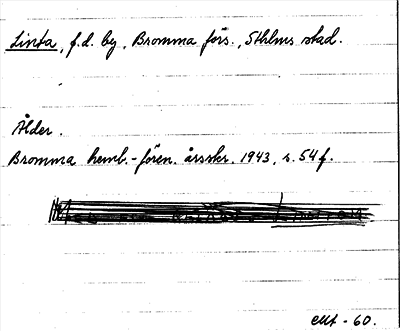 Linta, f.d. by, Bromma förs., Sthlms stad.
Ålder.
Bromma hemb.-fören. årsskr. 1943, s. 54 f.